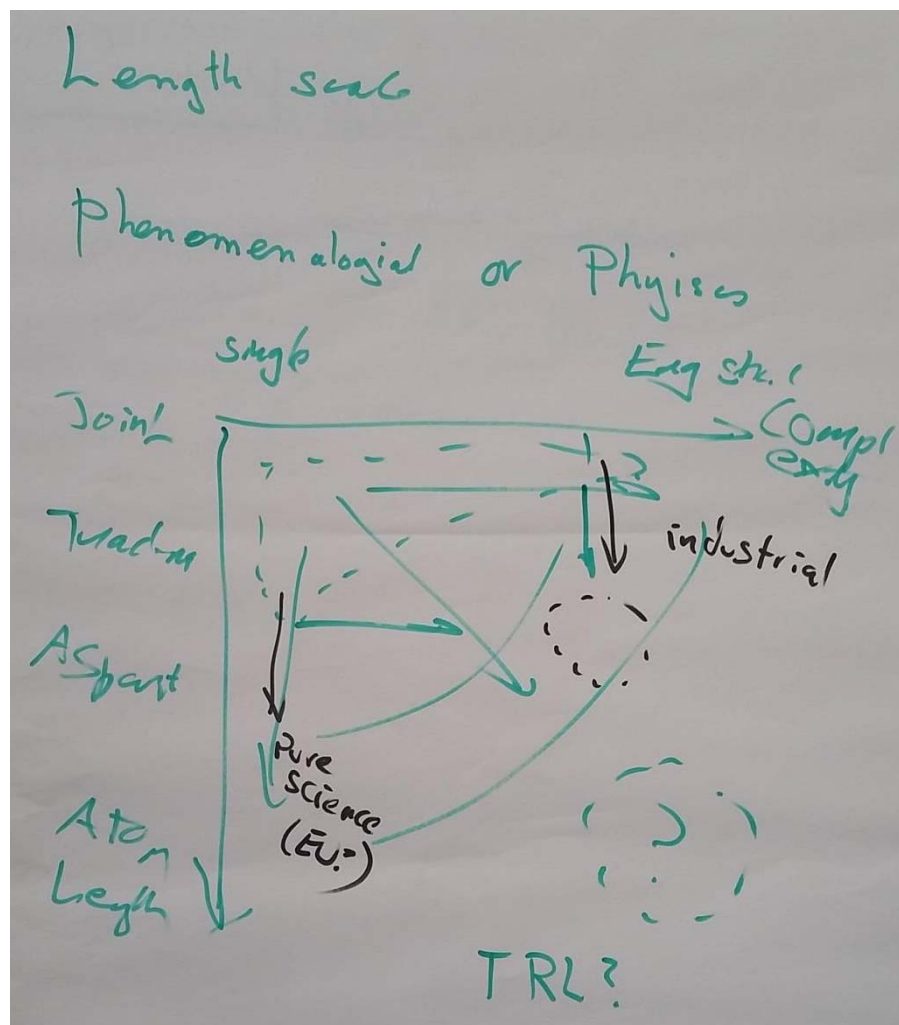 Length scale
Phenomenalogial or Phyiscs
single
Eng str.
Joint
Compl
exity
?
industrial
Aspart
Pure
science
(EU?)
Atom
Length
?
TRL?